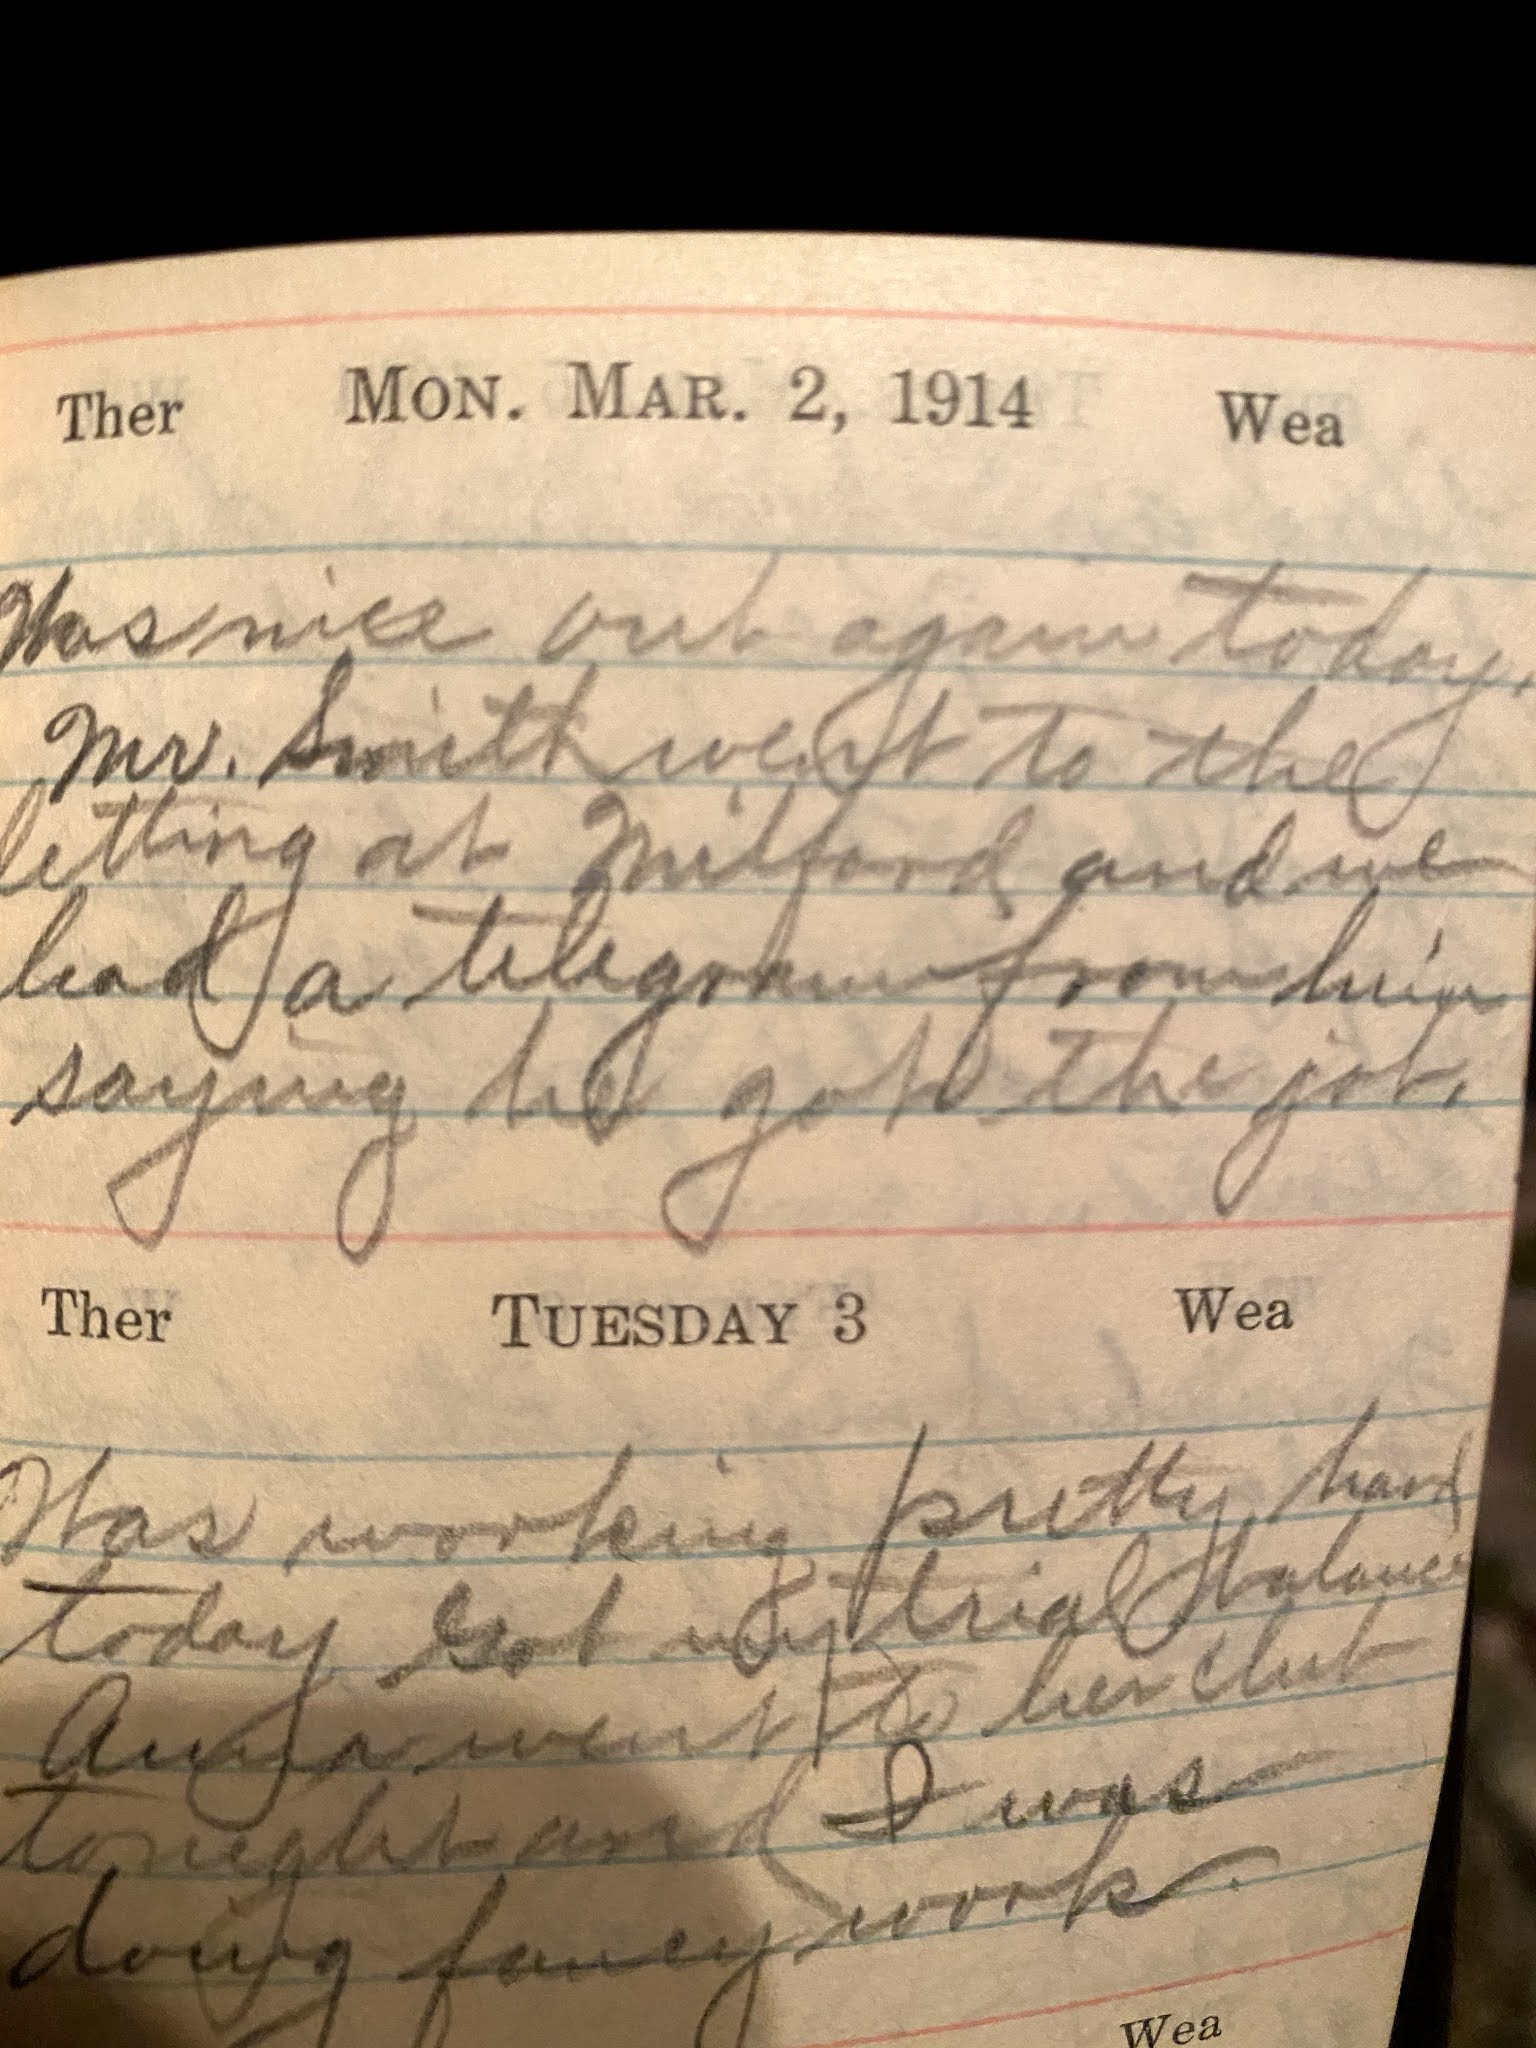 Ther MON. MAR. 2, 1914 Wea
Was nice out again today.
Mr. Smith went to the
letting at Milford and we
had a telegram from him
saying he got the job.
Ther TUESDAY 3 Wea
Was working pretty hard
today. Got my trial balance
Anna went to her club
tonight and I was
doing fancy work.
Wea